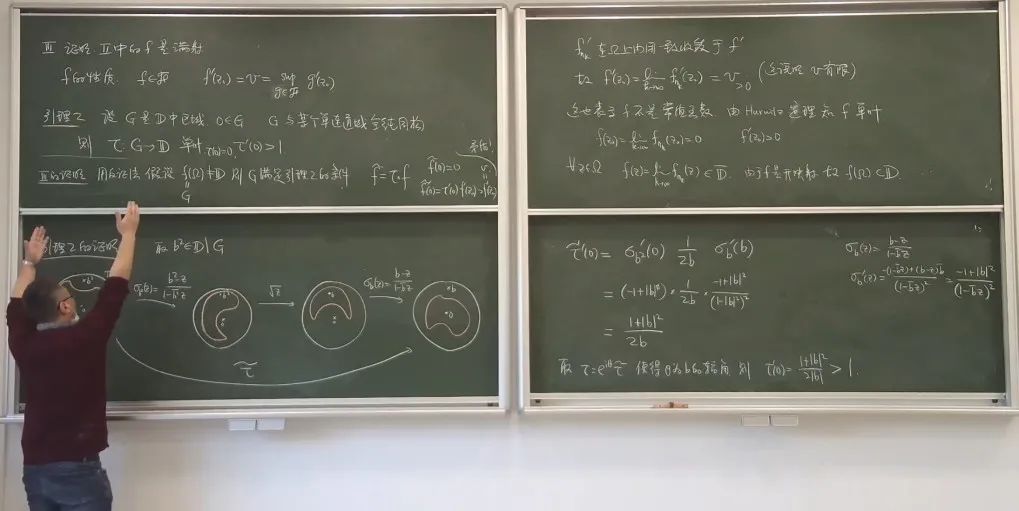 III 证明 II 中的 f 是满射
f 的性质. f∈𝓕 f'(z₀) = v = sup_{g∈𝓕} g'(z₀)
引理2 设 G 是 𝔻 中区域 0∈G G 与某个单连通域全纯同构
则 τ: G→𝔻 单叶 τ(0)=0, τ'(0)>1
III的证明 用反证法 假设 f(Ω)≠𝔻 则 G 满足引理2的条件 f̃ = τ∘f f̃(z₀)=0
G
矛盾!
引理2的证明 取 b²∈𝔻\G
σ_{b²}(z) = (b²-z)/(1-b̄²z) √z σ_b(z) = (b-z)/(1-b̄z)
b² b b
0 0 0
τ̃
f'_{n_k} 在Ω上内闭一致收敛于 f'
故 f'(z₀) = lim_{k→∞} f'_{n_k}(z₀) = v > 0 (这说明 v 有限)
这也表示 f 不是常值函数. 由 Hurwitz 定理知 f 单叶
f(z₀) = lim_{k→∞} f_{n_k}(z₀) = 0 f'(z₀)>0
∀z∈Ω f(z) = lim_{k→∞} f_{n_k}(z) ⊂ 𝔻̄. 由于 f 是开映射 故 f(Ω)⊂𝔻.
τ̃'(0) = σ'_{b²}(0) 1/(2b) σ'_b(b) σ_b(z) = (b-z)/(1-b̄z)
= (-1+|b|⁴) · 1/(2b) · (-1+|b|²)/(1-|b|²)² σ'_b(z) = (-(1-b̄z)+(b-z)b̄)/(1-b̄z)² = (-1+|b|²)/(1-b̄z)²
= (1+|b|²)/(2b)
取 τ = e^{iθ} τ̃ 使得 θ 为 b 的辐角, 则 τ'(0) = (1+|b|²)/(2|b|) > 1.